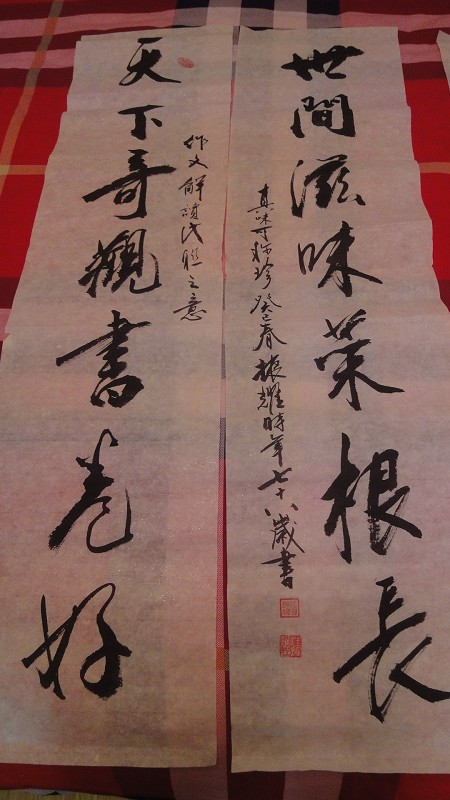 天下奇觀書卷好
作文解聯之意
世間滋味菜根長
真味可称珍癸巳春振耀時年七十八歲書